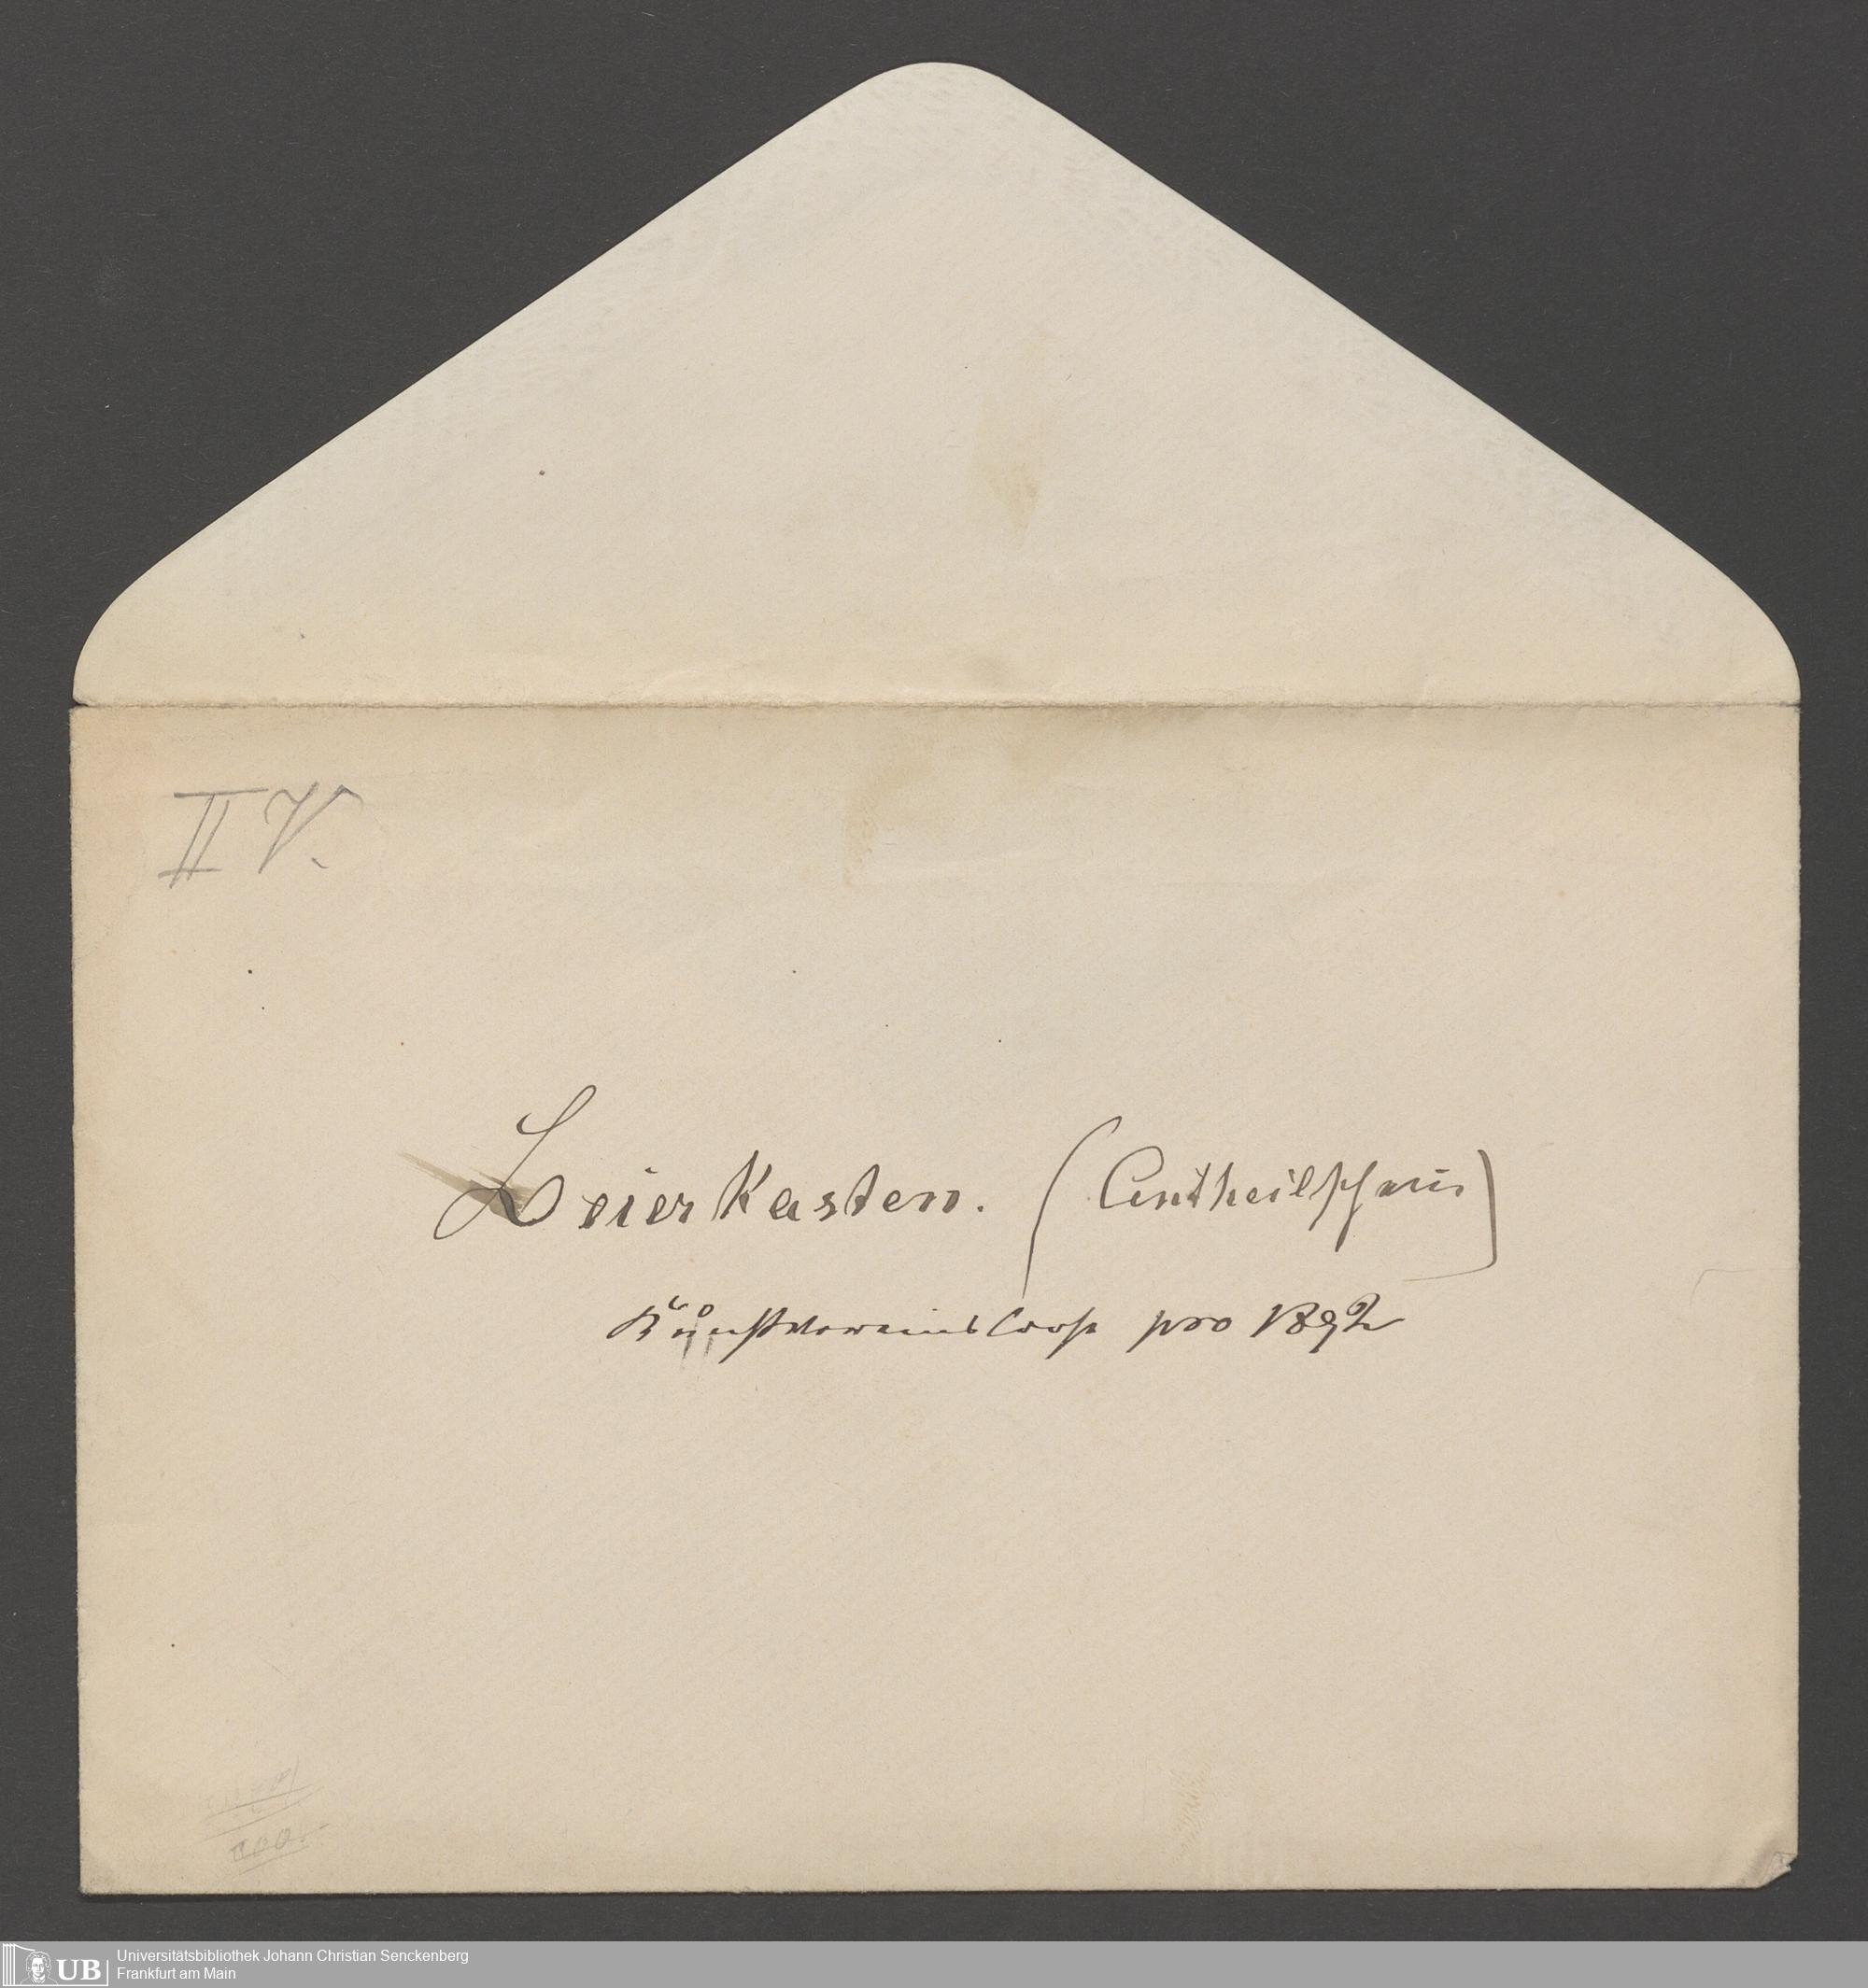 II V.
Leierkasten. (Antheilschein)
Kunstvereinsloose pro 1892
200.-
Universitätsbibliothek Johann Christian Senckenberg
UB
Frankfurt am Main